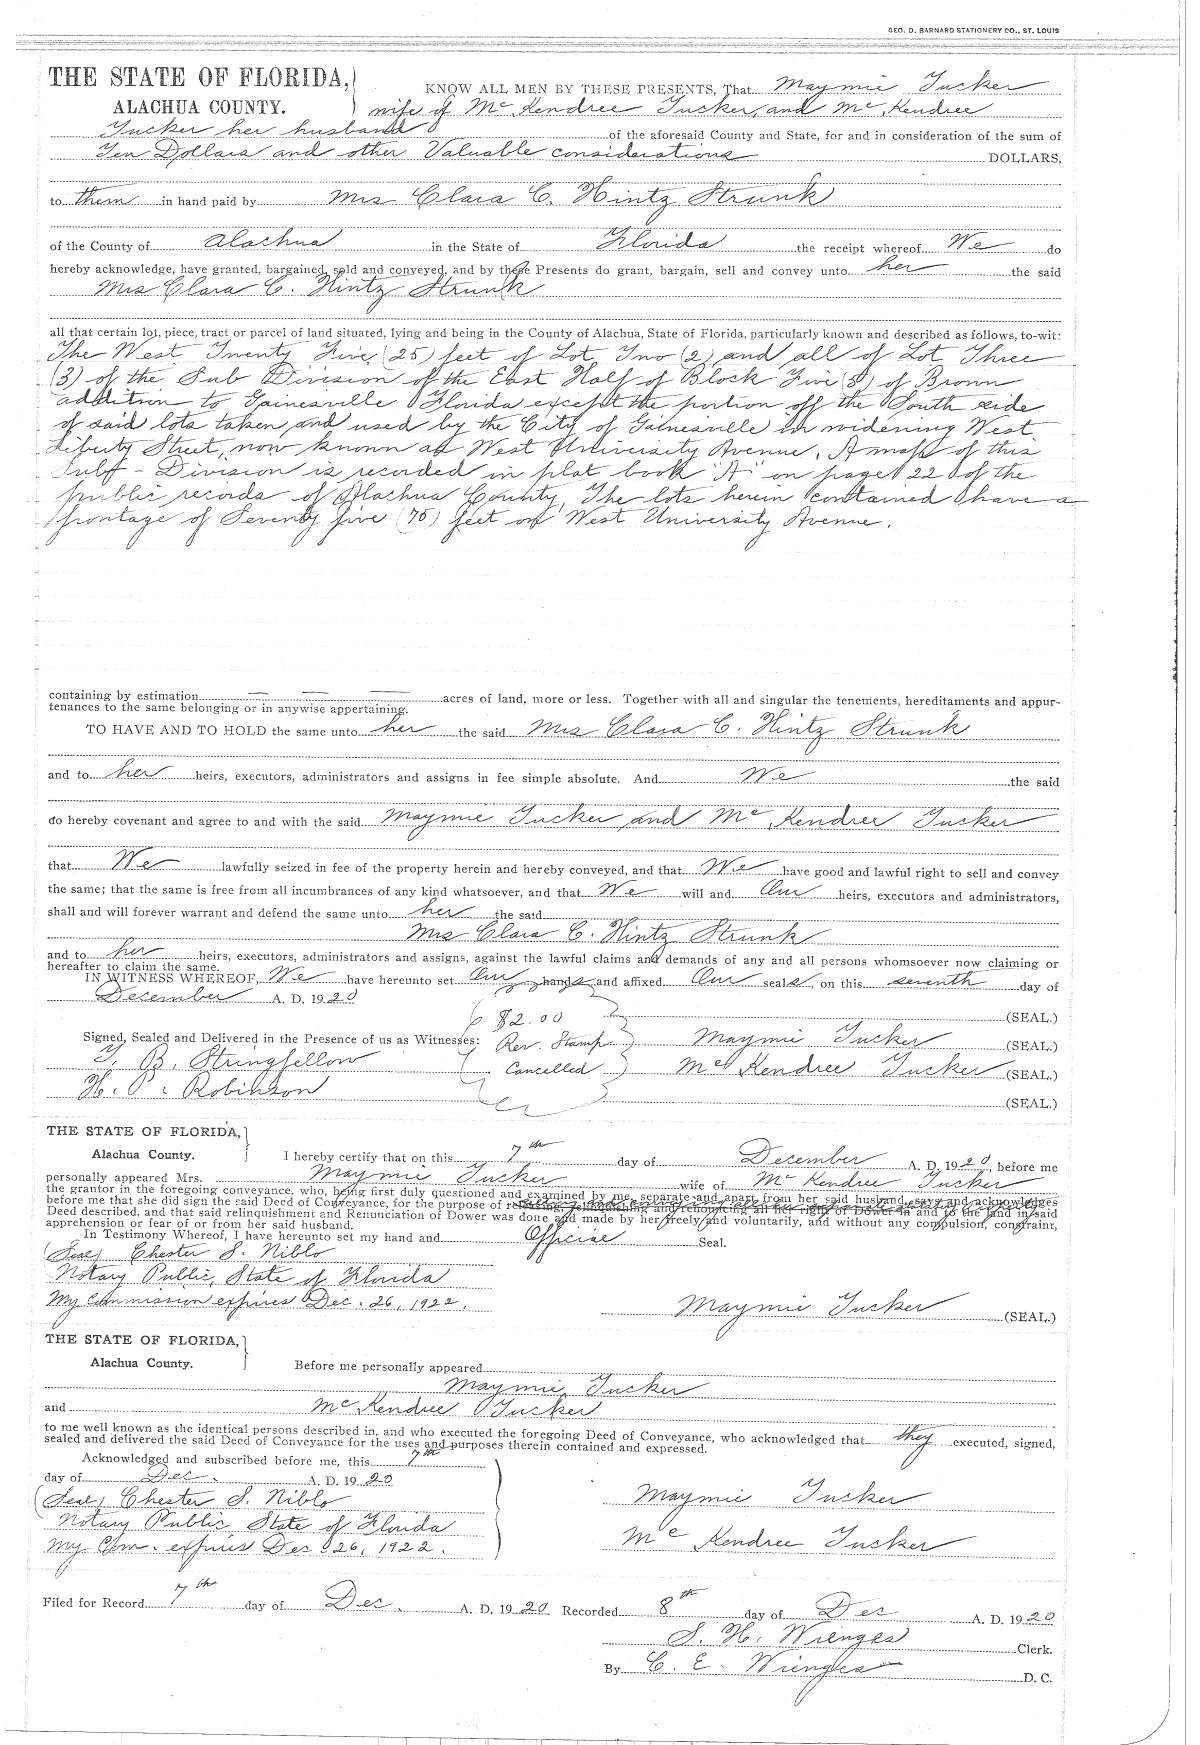 GEO. D. BARNARD STATIONERY CO., ST. LOUIS
THE STATE OF FLORIDA,
ALACHUA COUNTY.
KNOW ALL MEN BY THESE PRESENTS, That Maymie Tucker
wife of McKendree Tucker, and McKendree
Tucker her husband of the aforesaid County and State, for and in consideration of the sum of
Ten Dollars and other Valuable considerations DOLLARS,
to them in hand paid by Mrs Clara C. Hintz Strunk
of the County of Alachua in the State of Florida the receipt whereof We do
hereby acknowledge, have granted, bargained, sold and conveyed, and by these Presents do grant, bargain, sell and convey unto her the said
Mrs Clara C. Hintz Strunk
all that certain lot, piece, tract or parcel of land situated, lying and being in the County of Alachua, State of Florida, particularly known and described as follows, to-wit:
The West Twenty Five (25) feet of Lot Two (2) and all of Lot Three
(3) of the Sub Division of the East Half of Block Five (5) of Brown
addition to Gainesville Florida except the portion off the South side
of said lots taken and used by the City of Gainesville in widening West
Liberty Street, now known as West University Avenue. A map of this
Sub - Division is recorded in plat book "A" on page 22 of the
public records of Alachua County, The lots herein contained have a
frontage of Seventy five (75) feet on West University Avenue.
containing by estimation — — — acres of land, more or less. Together with all and singular the tenements, hereditaments and appur-
tenances to the same belonging or in anywise appertaining.
TO HAVE AND TO HOLD the same unto her the said Mrs Clara C. Hintz Strunk
and to her heirs, executors, administrators and assigns in fee simple absolute. And We the said
do hereby covenant and agree to and with the said Maymie Tucker and McKendree Tucker
that We lawfully seized in fee of the property herein and hereby conveyed, and that We have good and lawful right to sell and convey
the same; that the same is free from all incumbrances of any kind whatsoever, and that We will and Our heirs, executors and administrators,
shall and will forever warrant and defend the same unto her the said
Mrs Clara C. Hintz Strunk
and to her heirs, executors, administrators and assigns, against the lawful claims and demands of any and all persons whomsoever now claiming or
hereafter to claim the same.
IN WITNESS WHEREOF, We have hereunto set Our hands and affixed Our seals, on this seventh day of
December A. D. 1920
$2.00 (SEAL.)
Signed, Sealed and Delivered in the Presence of us as Witnesses: Rev. Stamp Maymie Tucker (SEAL.)
B. Stringfellow Cancelled McKendree Tucker (SEAL.)
H. P. Robinson (SEAL.)
THE STATE OF FLORIDA,
Alachua County. I hereby certify that on this 7th day of December A. D. 1920, before me
personally appeared Mrs. Maymie Tucker wife of McKendree Tucker
the grantor in the foregoing conveyance, who, being first duly questioned and examined by me, separate and apart from her said husband, says and acknowledges
before me that she did sign the said Deed of Conveyance, for the purpose of releasing, relinquishing and renouncing all her right of Dower in and to the land in said
Deed described, and that said relinquishment and Renunciation of Dower was done and made by her freely and voluntarily, and without any compulsion, constraint,
apprehension or fear of or from her said husband.
In Testimony Whereof, I have hereunto set my hand and Official Seal.
(Seal) Chester S. Niblo
Notary Public, State of Florida
My Commission expires Dec. 26, 1922. Maymie Tucker (SEAL.)
THE STATE OF FLORIDA,
Alachua County. Before me personally appeared
Maymie Tucker
and McKendree Tucker
to me well known as the identical persons described in, and who executed the foregoing Deed of Conveyance, who acknowledged that they executed, signed,
sealed and delivered the said Deed of Conveyance for the uses and purposes therein contained and expressed.
Acknowledged and subscribed before me, this 7th
day of Dec. A. D. 1920
(Seal) Chester S. Niblo Maymie Tucker
Notary Public, State of Florida
My Com. expires Dec. 26, 1922. McKendree Tucker
Filed for Record 7th day of Dec. A. D. 1920 Recorded 8th day of Dec A. D. 1920
S. H. Wienges Clerk.
By C. E. Wienges D. C.